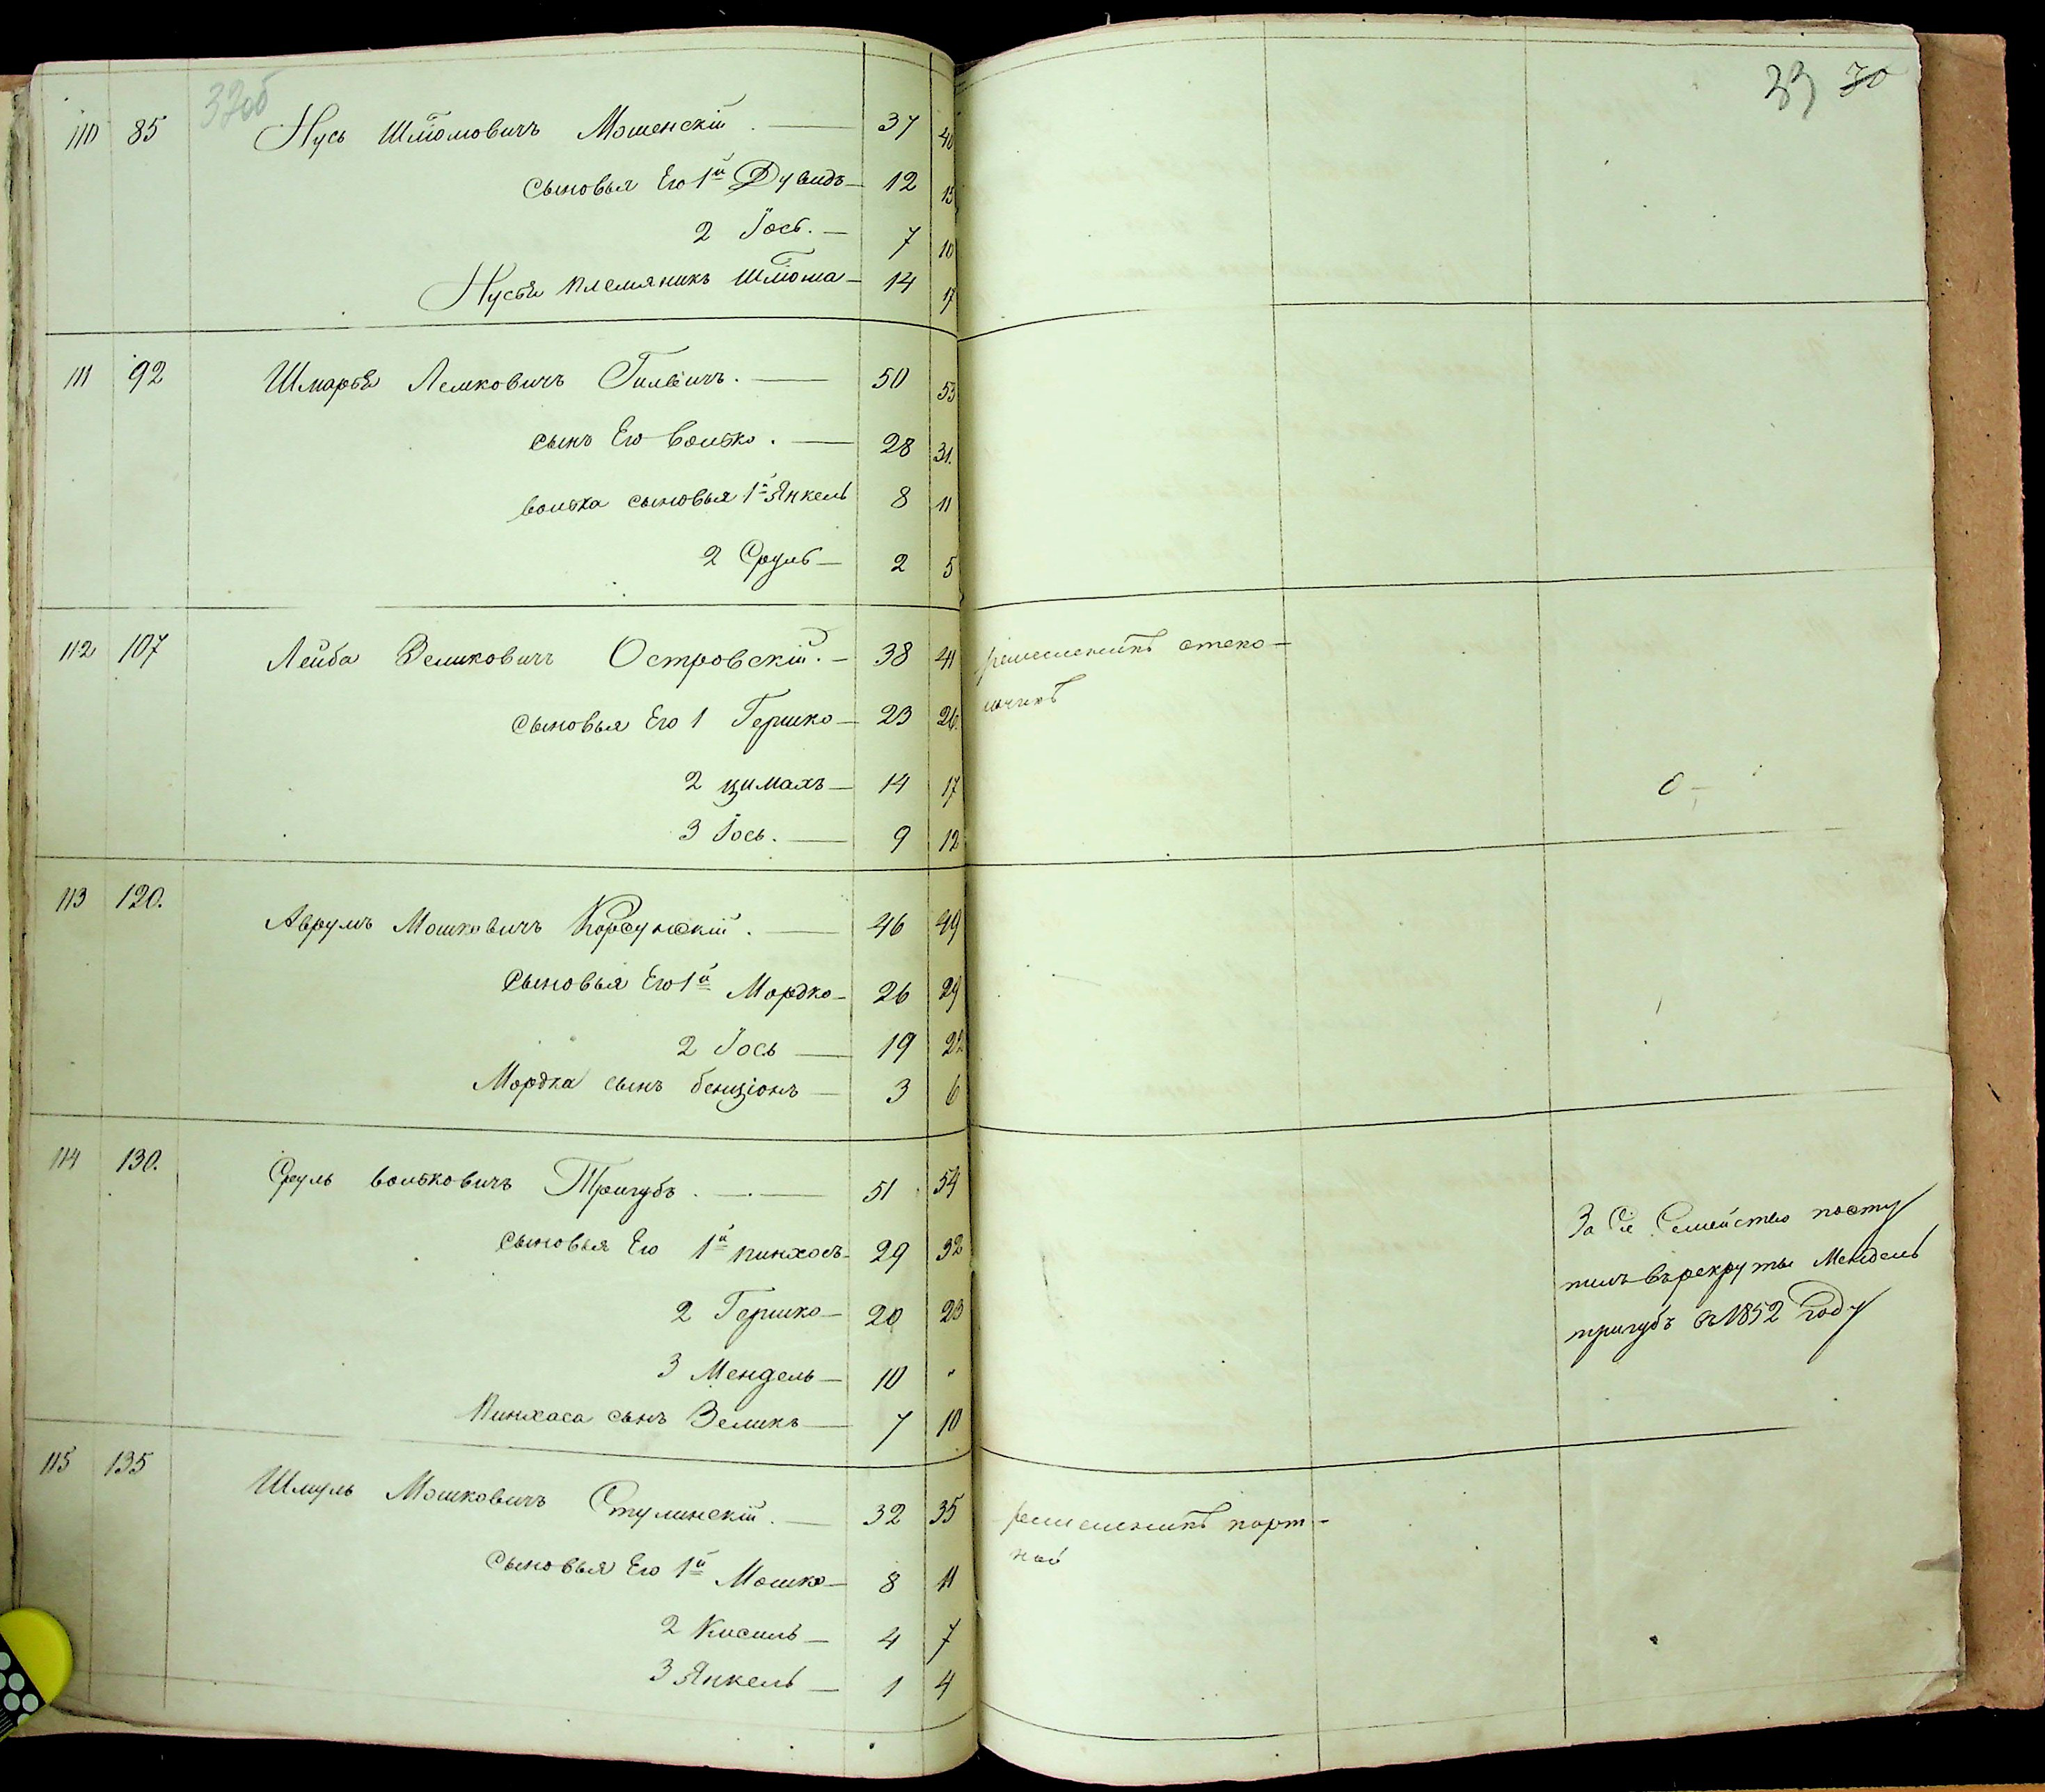 32об
110 85 Нусь Шліомовичъ Мошенскій. — 37 40
Сыновья Его 1й Дувидъ — 12 15
2 Іось. — 7 10
Нусья племяникъ Шліома — 14 17
111 92 Шмарья Лемковичъ Гилвичъ. — 50 53
сынъ Его Волько. — 28 31.
Волька сыновья 1й Янкель 8 11
2 Сруль — 2 5
112 107 Лейба Зеликовичъ Островскій. — 38 41
Сыновья Его 1 Гершко — 23 26.
2 цимахъ — 14 17
3 Іось. — 9 12
113 120. Аврумъ Мошковичъ Корсунскій. — 46 49
Сыновья Его 1й Мордко — 26 29
2 Іось — 19 22
Мордка сынъ бенціонъ — 3 6
114 130. Сруль вольковичъ Тригубъ. — 51 54
Сыновья Его 1й пинхосъ — 29 32
2 Гершко — 20 23
3 Мендель — 10 "
Пинхаса сынъ Зеликъ — 7 10
115 135 Шмуль Мошковичъ Стулинскій. — 32 35
Сыновья Его 1й Мошко — 8 11
2 Кисиль — 4 7
3 Янкель — 1 4
33 70
ремесленикъ стеко-
льчикъ
За Сіе Семейство посту
пилъ в рекруты Мендель
тригубъ в 1852 Году
ремесленикъ порт-
ной